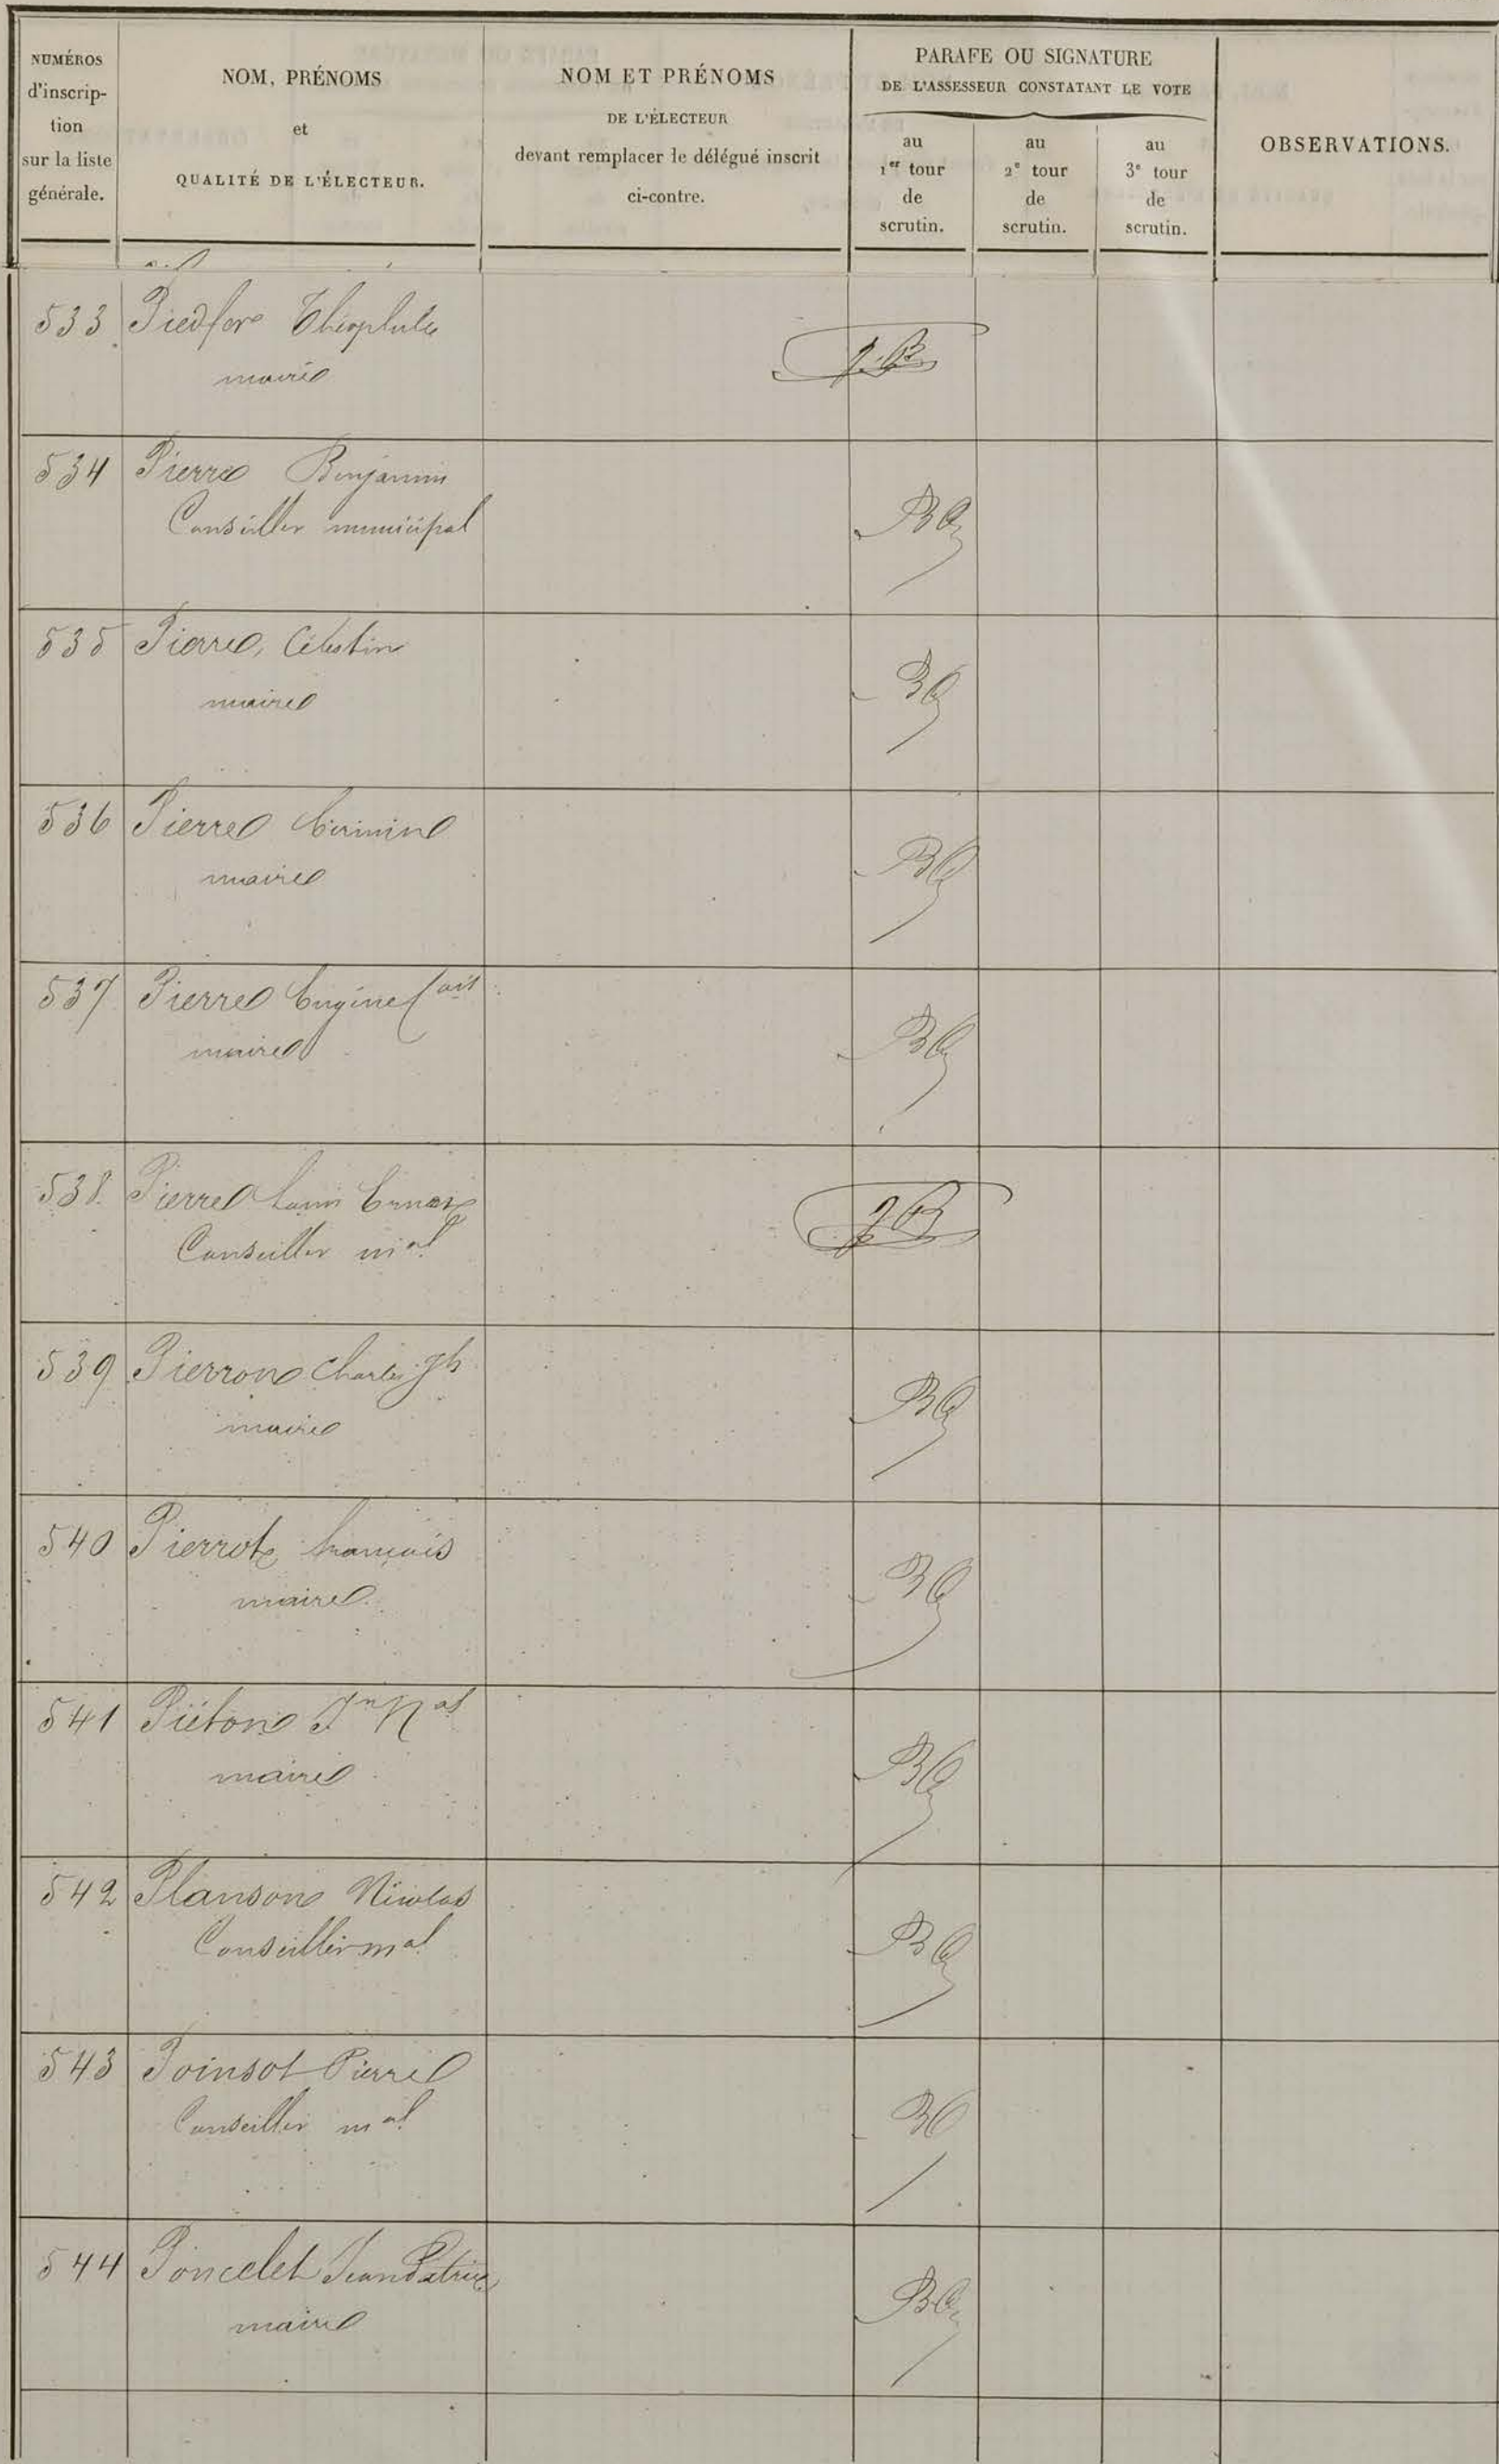 NUMÉROS
d'inscrip-
tion
sur la liste
générale.
NOM, PRÉNOMS
et
QUALITÉ DE L'ÉLECTEUR.
NOM ET PRÉNOMS
DE L'ÉLECTEUR
devant remplacer le délégué inscrit
ci-contre.
PARAFE OU SIGNATURE
DE L'ASSESSEUR CONSTATANT LE VOTE
au
1er tour
de
scrutin.
au
2e tour
de
scrutin.
au
3e tour
de
scrutin.
OBSERVATIONS.
533 Piedfer Théophile
maire
534 Pierre Benjamin
Conseiller municipal
535 Pierre, Célestin
maire
536 Pierre
maire
537 Pierre Eugène fois
maire
538 Pierre Louis Ernest
Conseiller mal
539 Pierron Charles Jh
maire
540 Pierrot François
maire
541 Piéton Jn Nas
maire
542 Planson Nicolas
Conseiller mal
543 Poinsot Pierre
Conseiller mal
544 Poncelet Jean Patrice
maire